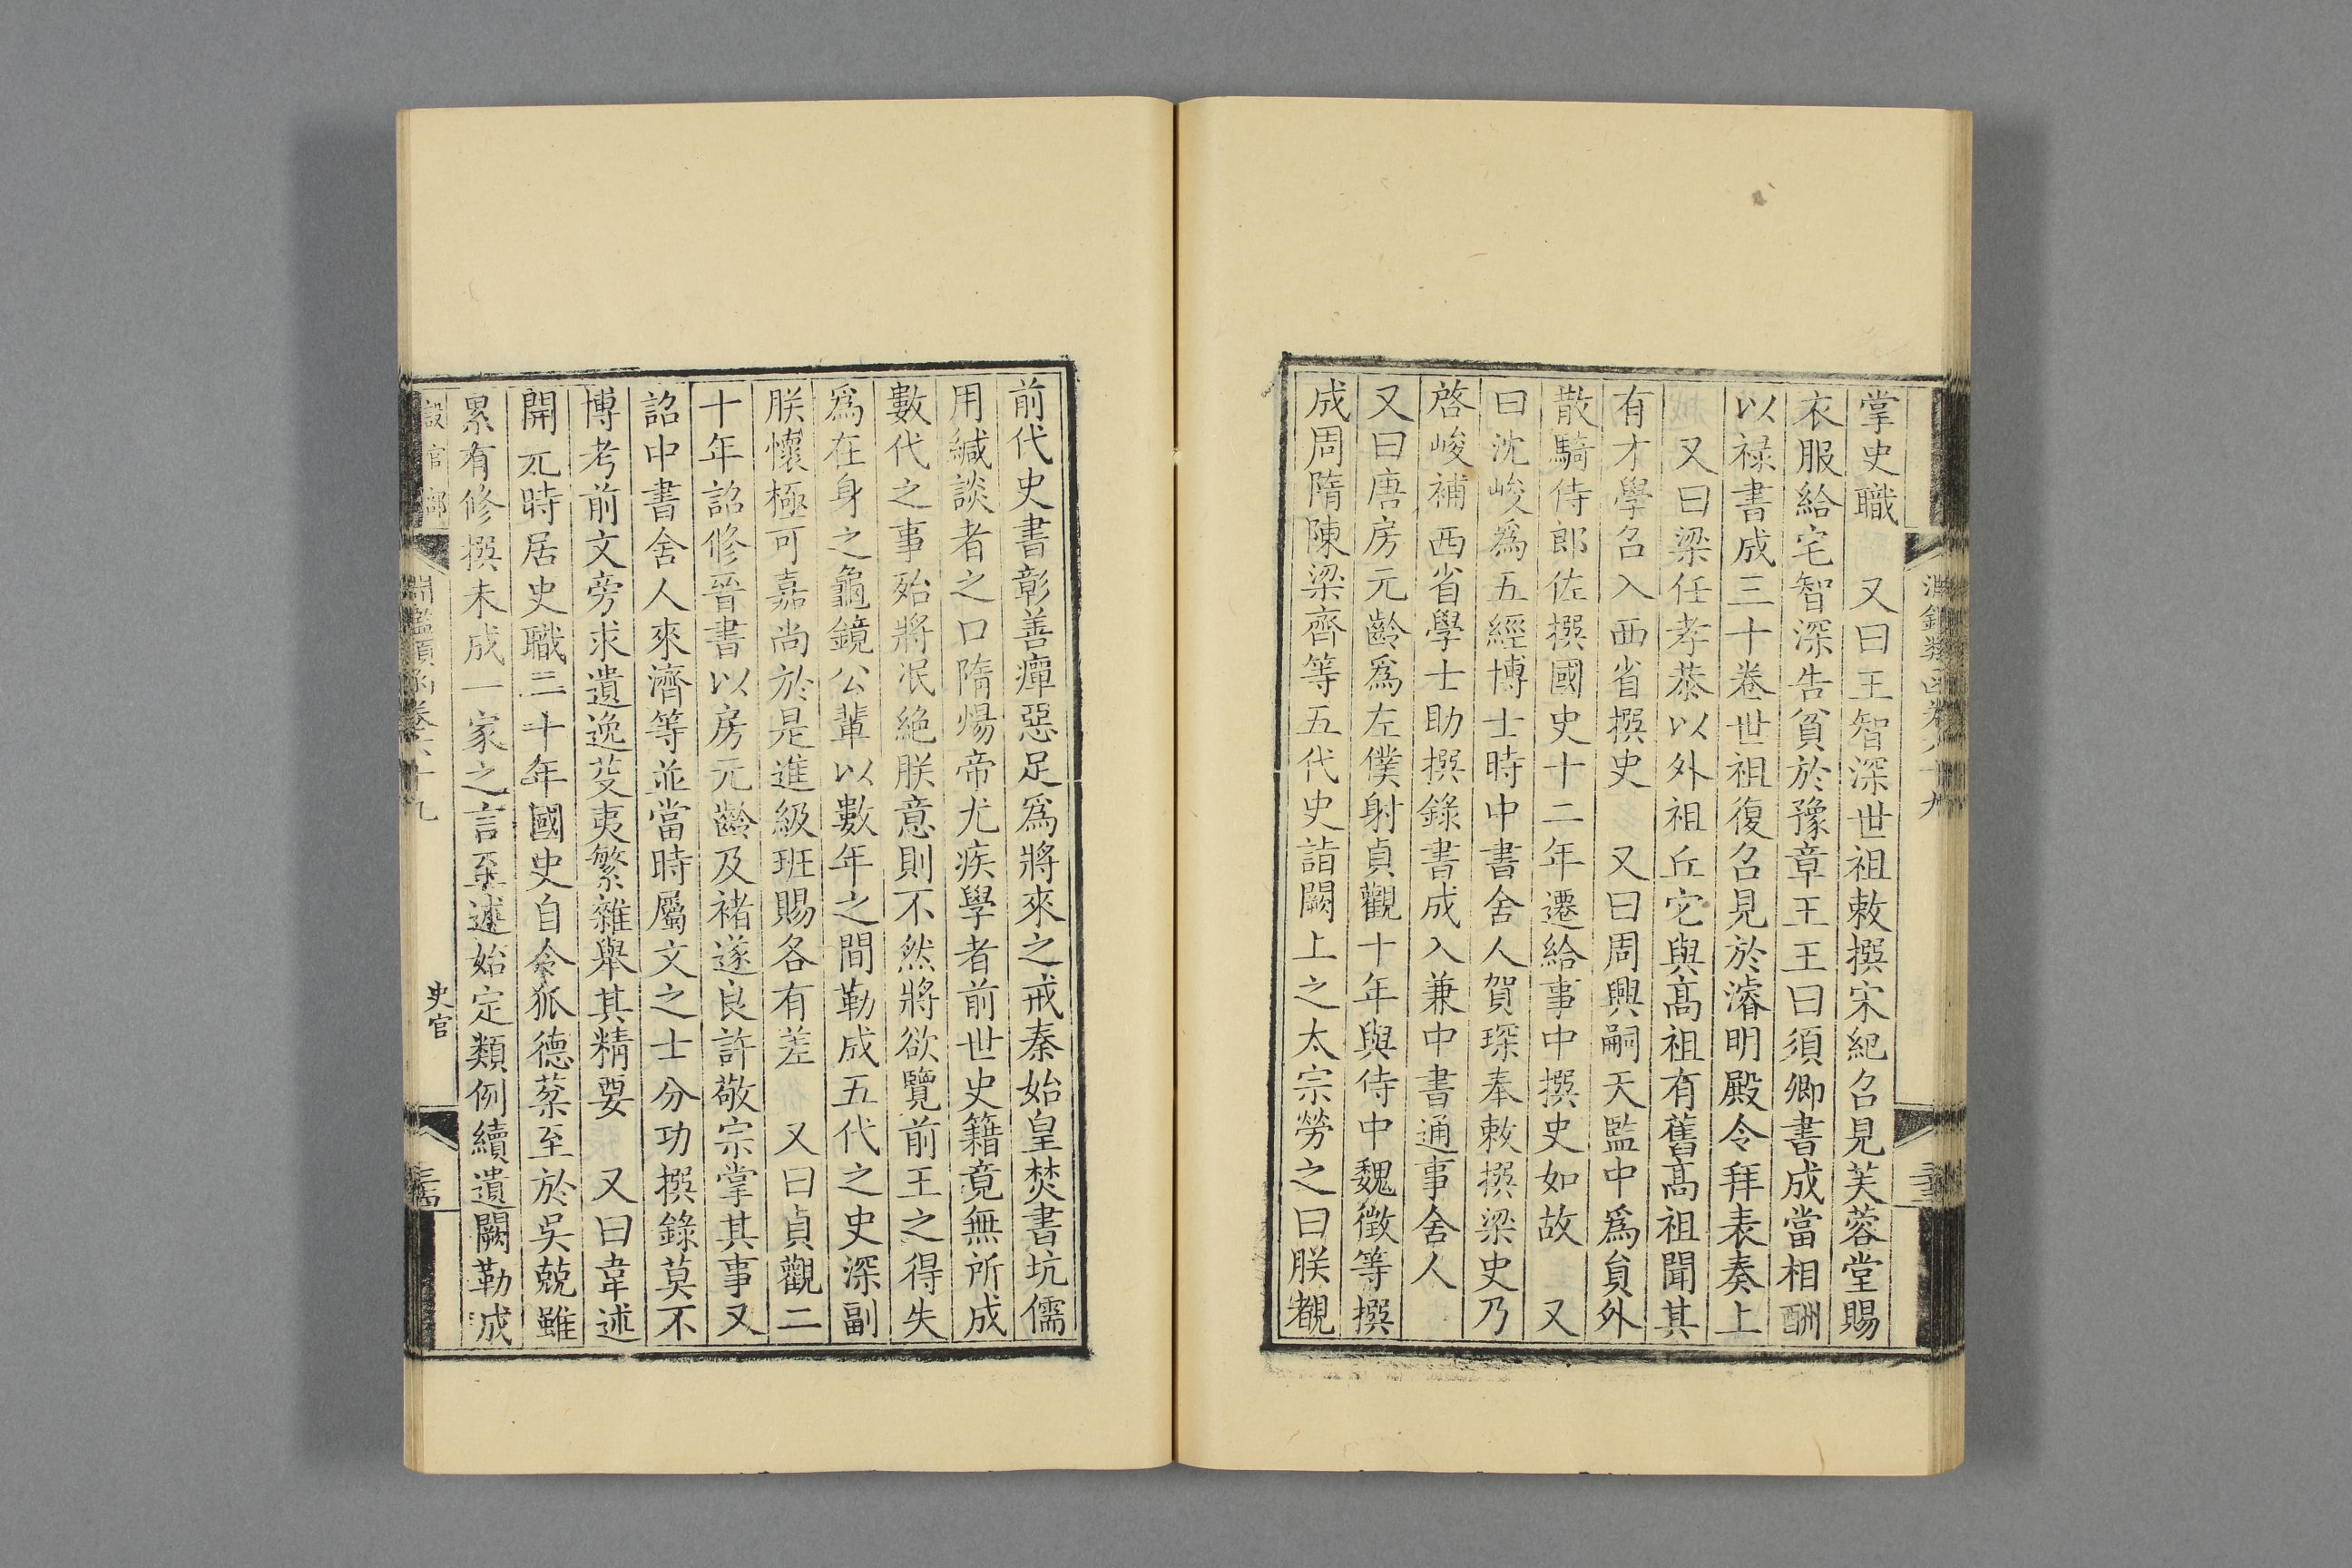 掌史職　又曰王智深世祖敕撰宋紀召見芙蓉堂賜
衣服給宅智深告貧於豫章王王曰須卿書成當相酬
以祿書成三十卷世祖復召見於濬明殿令拜表奏上
又曰梁任孝恭以外祖丘它與髙祖有舊髙祖聞其
有才學召入西省撰史　又曰周興嗣天監中爲貟外
散騎侍郎佐撰國史十二年遷給事中撰史如故　又
曰沈峻爲五經博士時中書舍人賀琛奉敕撰梁史乃
啓峻補西省學士助撰錄書成入兼中書通事舍人
又曰唐房元齡爲左僕射貞觀十年與侍中魏徵等撰
成周隋陳梁齊等五代史詣闕上之太宗勞之曰朕覩
前代史書彰善癉惡足爲將來之戒秦始皇焚書坑儒
用緘談者之口隋煬帝尤疾學者前世史籍竟無所成
數代之事殆將泯絶朕意則不然將欲覽前王之得失
爲在身之龜鏡公輩以數年之間勒成五代之史深副
朕懷極可嘉尚於是進級班賜各有差　又曰貞觀二
十年詔修晉書以房元齡及褚遂良許敬宗掌其事又
詔中書舍人來濟等並當時屬文之士分功撰錄莫不
博考前文旁求遺逸芟夷繁雜舉其精要　又曰韋述
開元時居史職二十年國史自令狐德棻至於吳兢雖
累有修撰未成一家之言至述始定類例續遺闕勒成
設官部
淵鑑類函卷六十九
史官